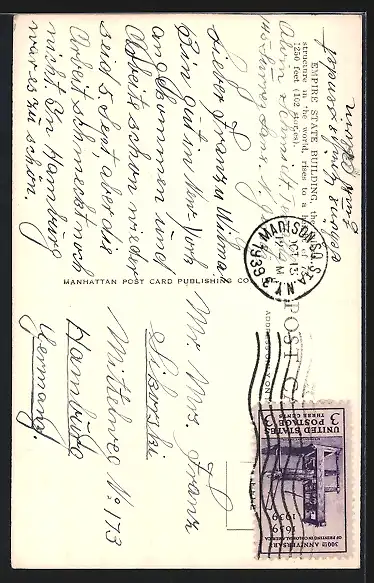 EMPIRE STATE BUILDING, the
structure in the world, rises to a
1250 feet (102 stories).
Lieber Franz u Wilma
Bin gut in New-York
an Kommen und
Arbeite schon wieder
seid 5. Sept, aber die
Arbeit schmeckt noch
nicht. In Hamburg
war es zu schön.
MANHATTAN POST CARD PUBLISHING CO
POST
ADDRESS ONLY
MADISON SQ. STA.
OCT 13
12 M
1939
N.Y.
Mr Mrs. Franz
Sikorski
Mittelweg No 173
Hamburg
Germany.
300TH ANNIVERSARY
OF PRINTING IN COLONIAL AMERICA
1639 1939
UNITED STATES
POSTAGE
3 THREE CENTS 3